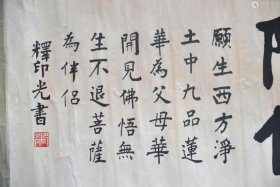 願生西方淨
土中九品蓮
華為父母華
開見佛悟無
生不退菩薩
為伴侶
釋印光書